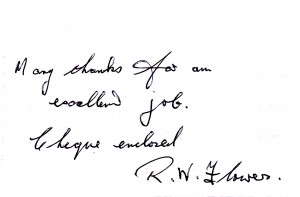 Many thanks for an
excellent job.
Cheque enclosed
R.W. Flower.